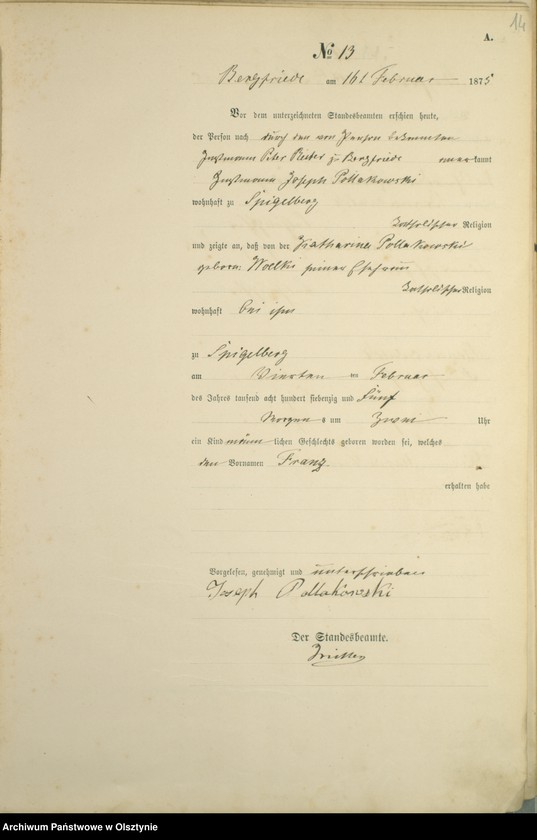 14
A.
No 13
Bergfriede am 16t Februar 1875
Vor dem unterzeichneten Standesbeamten erschien heute,
der Person nach durch den von Person bekannten
Instmann Peter Reiter zu Bergfriede anerkannt
Instmann Joseph Pollakowski
wohnhaft zu Spigelberg
katholischer Religion
und zeigte an, daß von der Katharina Pollakowski
geboren Wolki seiner Ehefrau
katholischer Religion
wohnhaft bei ihm
zu Spigelberg
am Vierten ten Februar
des Jahres tausend acht hundert siebenzig und Fünf
Morgens um Zwei Uhr
ein Kind männlichen Geschlechts geboren worden sei, welches
den Vornamen Franz
erhalten habe
Vorgelesen, genehmigt und unterschrieben
Joseph Pollakowski
Der Standesbeamte.
Archiwum Państwowe w Olsztynie